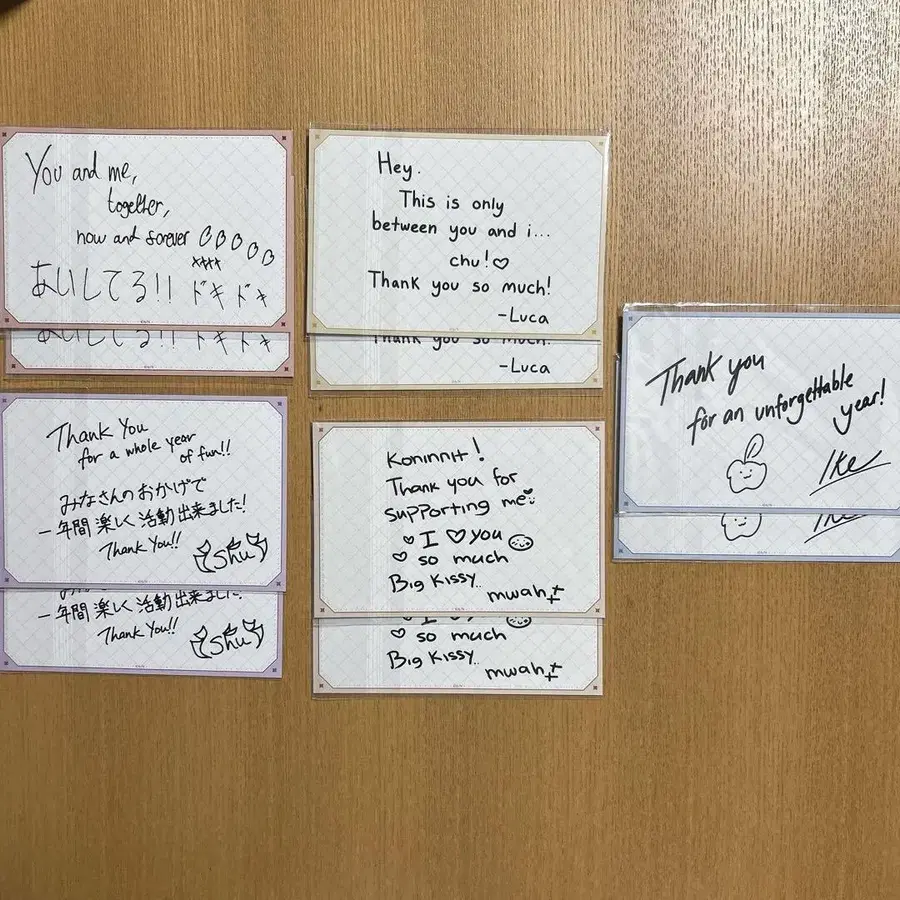 You and me,
together,
now and forever
あいしてる!! ドキドキ
あいしてる!! ドキドキ
Thank You
for a whole year
of fun!!
みなさんのおかげで
一年間楽しく活動出来ました!
Thank You!!
Shu
一年間楽しく活動出来ました!
Thank You!!
Shu
Hey.
This is only
between you and i...
chu!♡
Thank you so much!
-Luca
Thank you so much!
-Luca
Koninnit!
Thank you for
supporting me
♡ I ♡ you
♡ so much
Big Kissy..
mwah
♡ so much
Big Kissy..
mwah
Thank you
for an unforgettable
year!
Ike
Ike